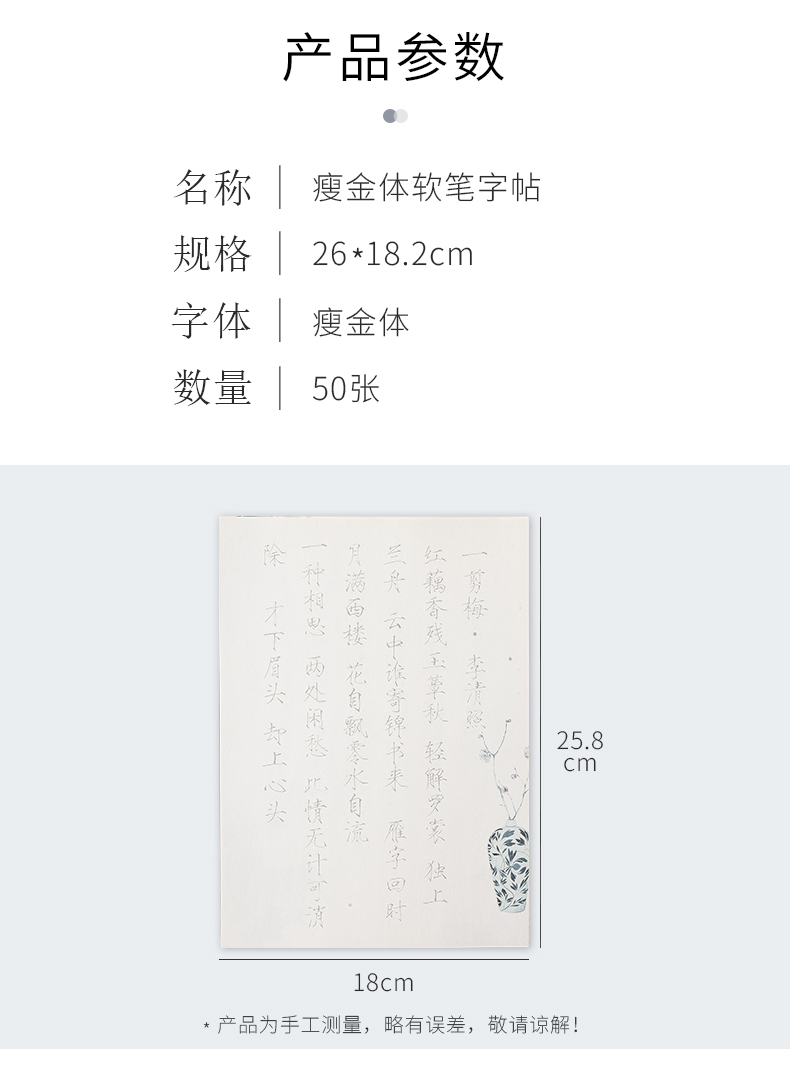 产品参数
名称 瘦金体软笔字帖
规格 26*18.2cm
字体 瘦金体
数量 50张
一剪梅·李清照
红藕香残玉簟秋 轻解罗裳 独上
兰舟 云中谁寄锦书来 雁字回时
月满西楼 花自飘零水自流
一种相思 两处闲愁 此情无计可消
除 才下眉头 却上心头
25.8
cm
18cm
* 产品为手工测量，略有误差，敬请谅解！